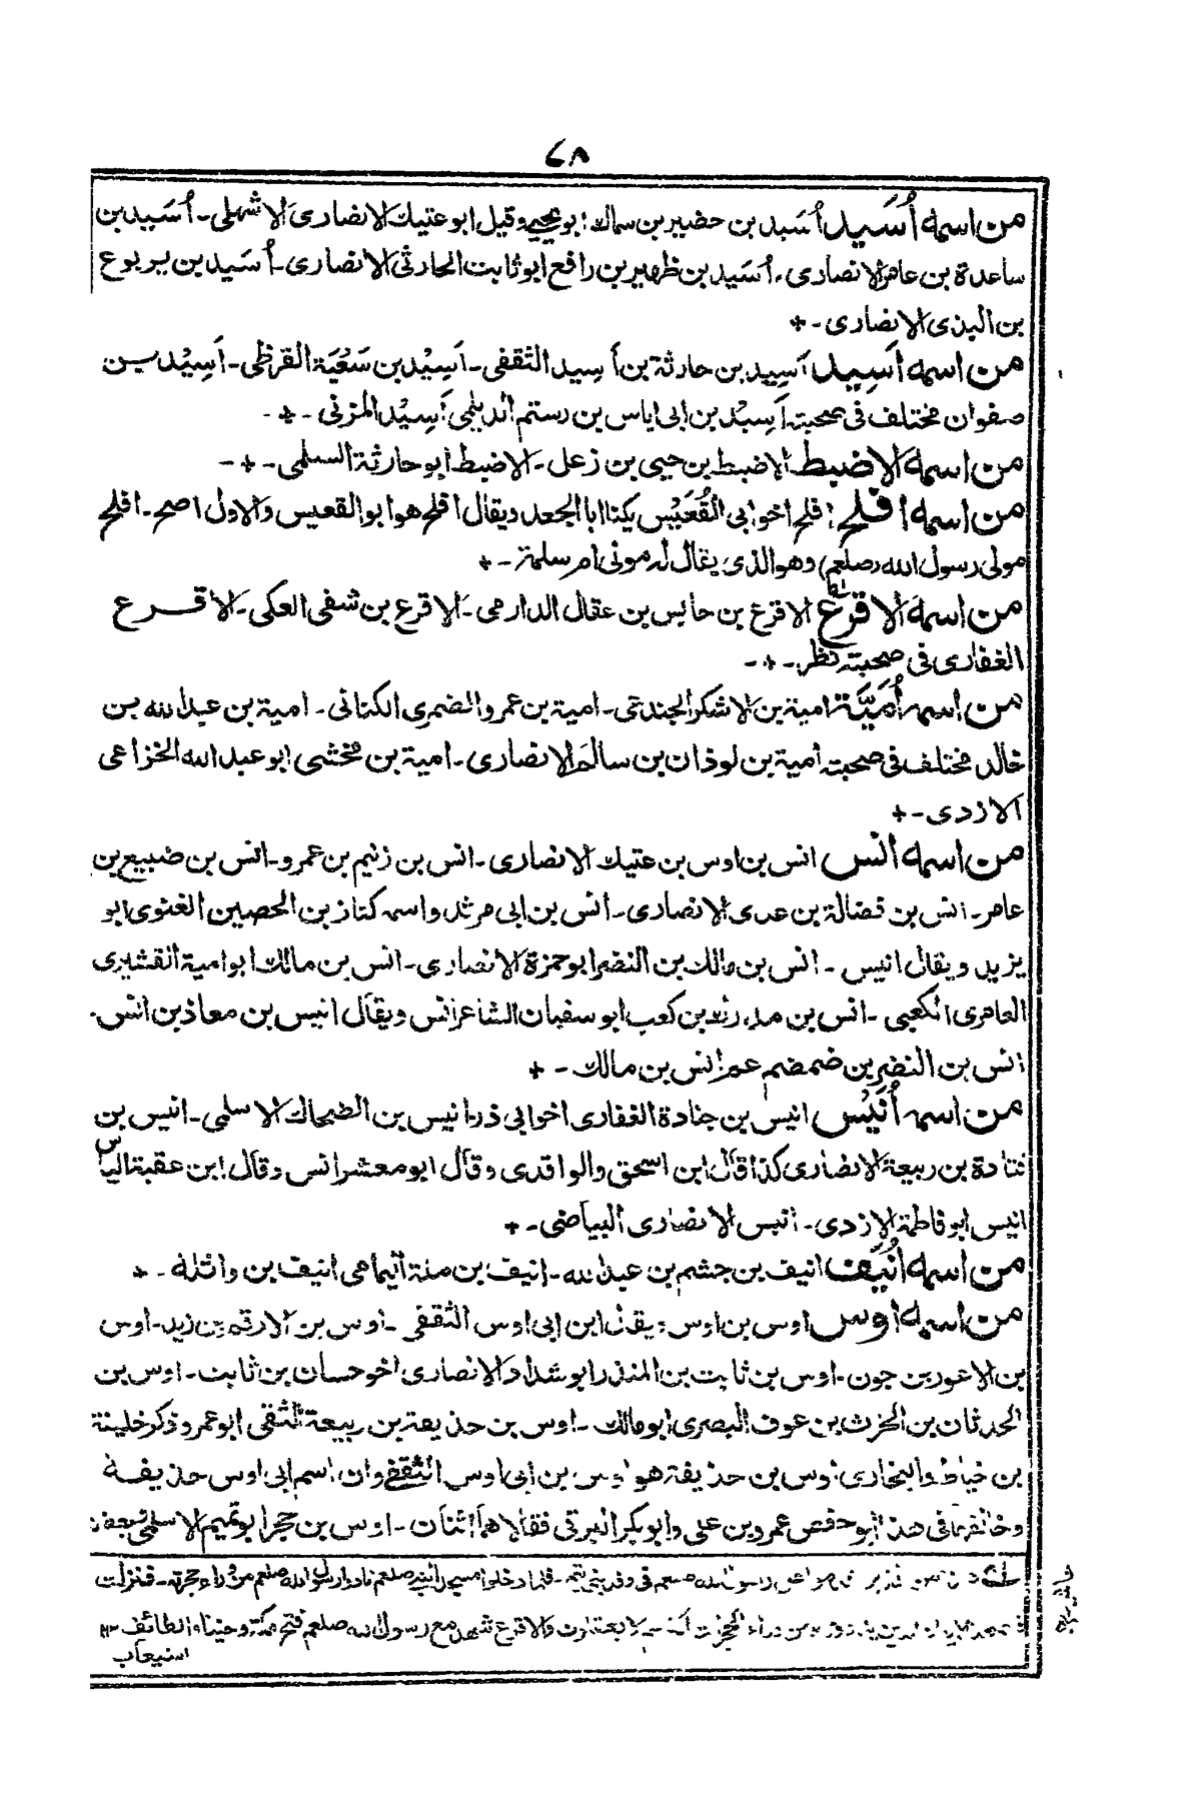 ٦٨
من اسمه أُسَيد أُسَيد بن حضير بن سماك ابو يحيى وقيل ابو عتيك الانصارى الاشهلى ـ أُسَيد بن
ساعدة بن عامر الانصارى ـ أُسَيد بن ظهير بن رافع ابو ثابت الحارثى الانصارى ـ أُسَيد بن يربوع
بن البدى الانصارى ـ +
من اسمه اَسِيد اَسِيد بن حارثة بن أسيد الثقفى ـ اَسِيْد بن سَعْيَة القرظى ـ اَسِيْد بن
صفوان مختلف فى صحبته اَسِيْد بن ابى اياس بن رستم الديلمى اَسِيْد المزنى ـ + ـ
من اسمه الاضبط الاضبط بن حيى بن زعل ـ الاضبط ابو حارثة السلمى ـ + ـ
من اسمه افلح افلح اخو ابى القُعَيْس يكنا ابا الجعد ويقال افلح هو ابو القعيس والاول اصح ـ افلح
مولى رسول الله (صلعم) وهو الذى يقال له مولى ام سلمة ـ +
من اسمه الاقرع الاقرع بن حابس بن عقال الدارمى ـ الاقرع بن شفى العكى ـ الاقرع
الغفارى فى صحبته نظر ـ + ـ
من اسمه اُمَيَّة امية بن الاشكر الجندعى ـ امية بن عمرو الضمرى الكنانى ـ امية بن عبد الله بن
خالد مختلف فى صحبته امية بن لوذان بن سالم الانصارى ـ امية بن مخشى ابو عبد الله الخزاعى
الازدى ـ +
من اسمه انس انس بن اوس بن عتيك الانصارى ـ انس بن زنيم بن عمرو ـ انس بن ضبيع بن
عامر ـ انس بن فضالة بن عدى الانصارى ـ انس بن ابى مرثد واسمه كناز بن الحصين الغنوى ابو
يزيد ويقال انيس ـ انس بن مالك بن النضر ابو حمزة الانصارى ـ انس بن مالك ابو امية القشيرى
العامرى الكعبى ـ انس بن كعب ابو سفيان الشاعر انس ويقال انيس بن معاذ بن انس ـ
انس بن النضر بن ضمضم عم انس بن مالك ـ +
من اسمه اُنَيْس انيس بن جنادة الغفارى اخو ابى ذر انيس بن الضحاك الاسلمى ـ انيس بن
قتادة بن ربيعة الانصارى كذا قال ابن اسحق والواقدى وقال ابو معشر انس وقال ابن عقبة الياس
انيس ابو فاطمة الازدى ـ انيس الانصارى البياضى ـ +
من اسمه اُنَيف انيف بن جشم بن عبد الله ـ انيف بن ملة اليمامى انيف بن واثلة ـ +
من اسمه اوس اوس بن اوس ويقال ابن ابى اوس الثقفى ـ اوس بن الارقم بن زيد ـ اوس
بن الاعور بن جون ـ اوس بن ثابت بن المنذر ابو شداد الانصارى اخو حسان بن ثابت ـ اوس بن
الحدثان بن الحرث بن عوف البصرى ابو مالك ـ اوس بن حذيفة بن ربيعة الثقفى ابو عمرو ذكر خليفة
بن خياط والبخارى اوس بن حذيفة هو اوس بن ابى اوس الثقفى وان اسم ابى اوس حذيفة
وخالفهما فى هذا ابو حفص عمرو بن على وابو بكر البرقى فقالا هما اثنان ـ اوس بن حجر ابو تميم الاسلمى
رسول الله صلعم فى وفد بنى تميم ـ فلما دخلوا مسجد النبى صلعم نادوا رسول الله صلعم من وراء حجرته ـ فنزلت
من وراء الحجرات لا يعقلون والاقرع شهد مع رسول الله صلعم فتح مكة وحنينا والطائف ١٢
استيعاب